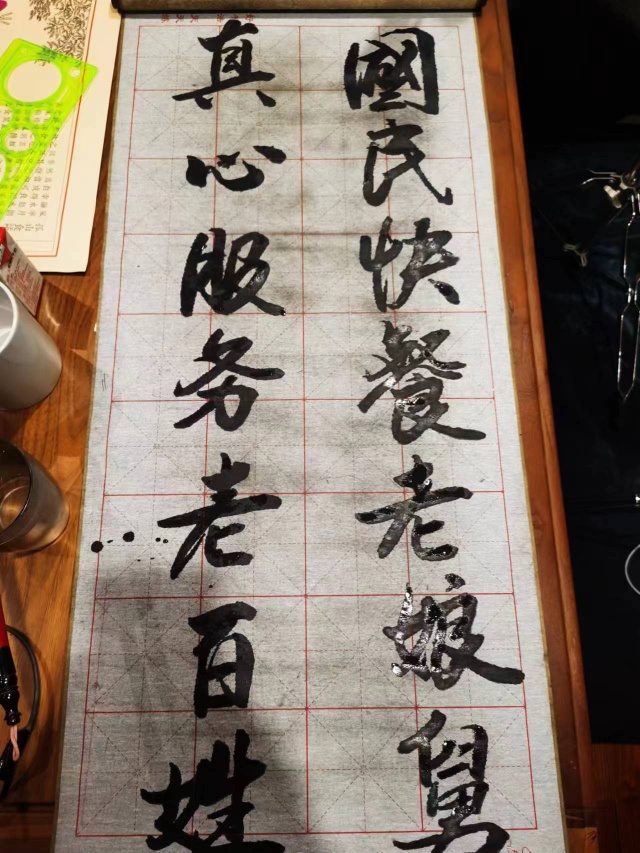 國民快餐老娘舅
真心服务老百姓